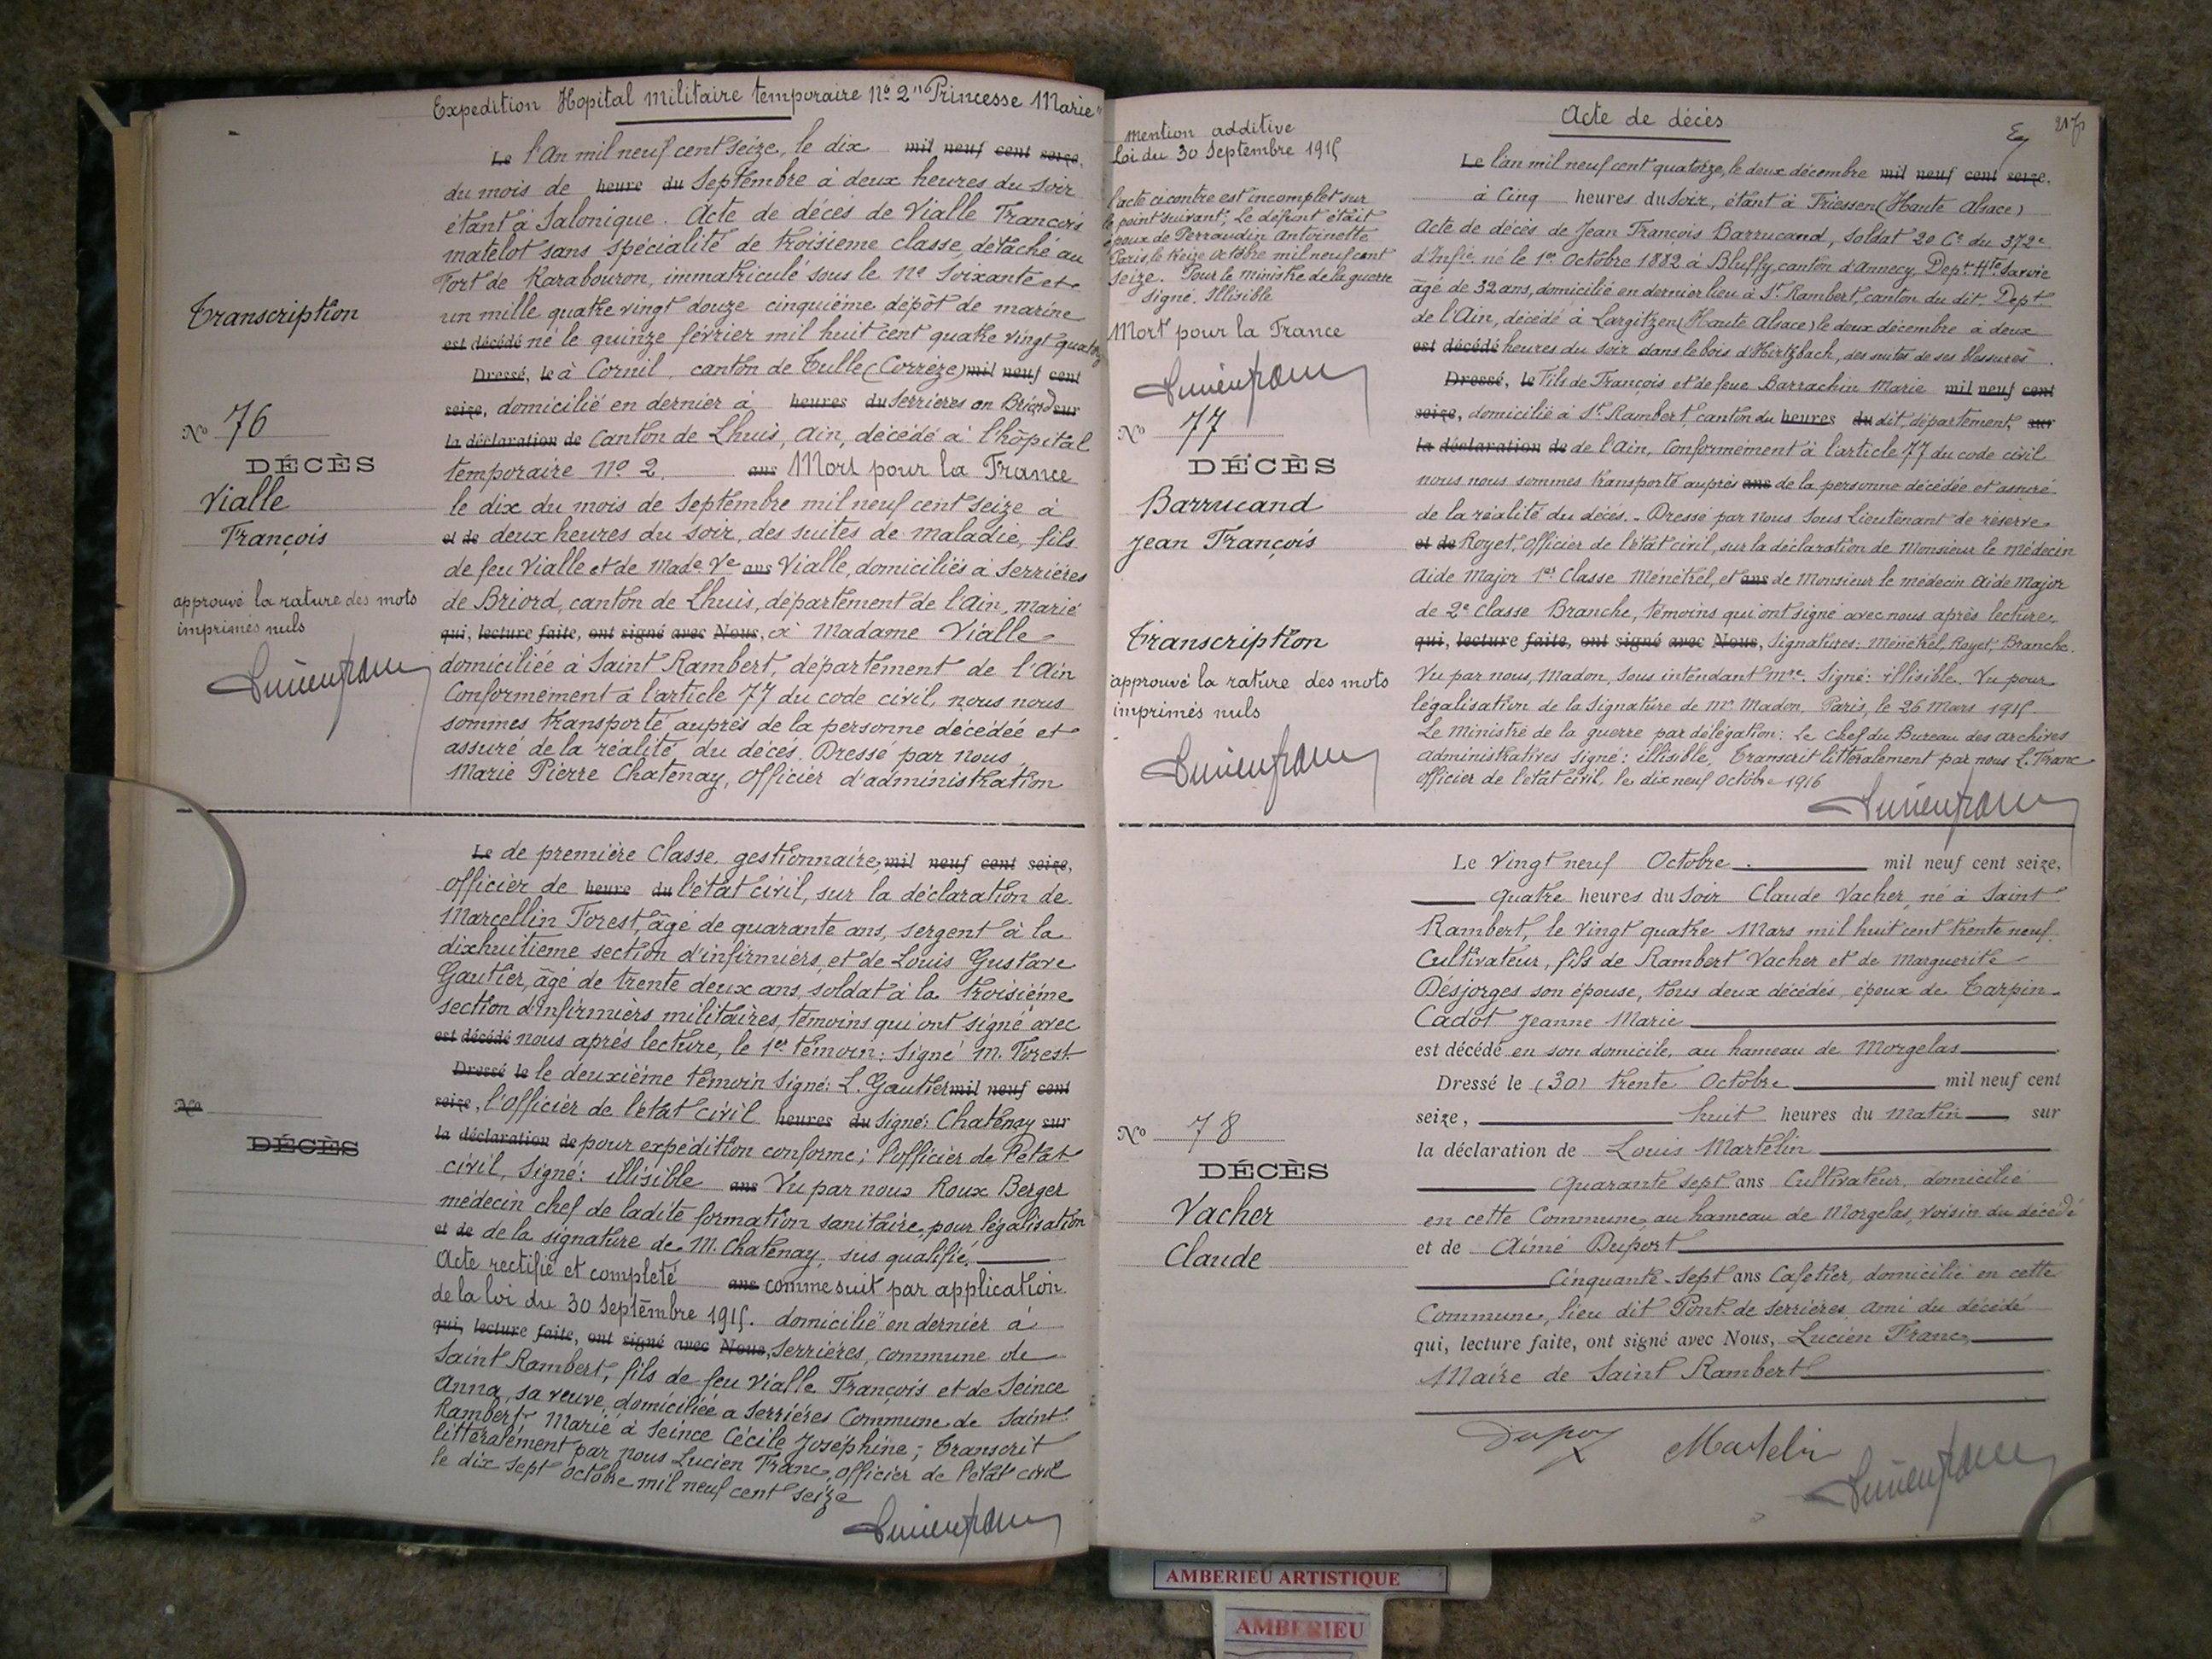 Expédition Hopital militaire temporaire No 2 "Princesse Marie"
Transcription
No 76
DÉCÈS
Vialle
François
approuvé la rature des mots
imprimés nuls
Le l'an mil neuf cent seize, le dix mil neuf cent seize,
du mois de heure du Septembre à deux heures du soir
étant à Salonique. Acte de décès de Vialle François
matelot sans spécialité de troisième classe, détaché au
Fort de Karabouron, immatriculé sous le No Soixante et
un mille quatre vingt douze cinquième dépôt de marine
est décédé né le quinze février mil huit cent quatre vingt quatorze
Dressé, le à Cornil, canton de Tulle (Corrèze) mil neuf cent
seize, domicilié en dernier à heures du Serrières en Briord sur
la déclaration de Canton de Lhuis, Ain, décédé à l'hôpital
temporaire No 2. ans Mort pour la France
le dix du mois de Septembre mil neuf cent seize à
et de deux heures du soir, des suites de maladie, fils
de feu Vialle et de Made Ve ans Vialle, domiciliés à Serrières
de Briord, canton de Lhuis, département de l'Ain, marié
qui, lecture faite, ont signé avec Nous, à Madame Vialle
domiciliée à Saint Rambert, département de l'Ain
Conformément à l'article 77 du code civil, nous nous
sommes transporté auprès de la personne décédée et
assuré de la réalité du décès. Dressé par nous
Marie Pierre Chatenay, Officier d'administration
No
DÉCÈS
Le de première Classe, gestionnaire, mil neuf cent seize,
Officier de heure du l'état civil, sur la déclaration de
Marcellin Forest, âgé de quarante ans, sergent à la
dixhuitième section d'infirmiers, et de Louis Gustave
Gautier, âgé de trente deux ans, soldat à la troisième
section d'infirmiers militaires, témoins qui ont signé avec
est décédé nous après lecture, le 1er témoin: Signé M. Forest
Dressé le le deuxième témoin Signé: L. Gautier mil neuf cent
seize, l'Officier de l'état civil heures du Signé: Chatenay sur
la déclaration de pour expédition conforme; l'officier de l'état
civil, Signé: illisible ans Vu par nous Roux Berger
médecin chef de ladite formation sanitaire, pour légalisation
et de de la signature de M. Chatenay, sus qualifié.
Acte rectifié et complété ans comme suit par application
de la loi du 30 septembre 1915. domicilié en dernier à
qui, lecture faite, ont signé avec Nous, Serrières, commune de
Saint Rambert, fils de feu Vialle François et de Seince
Anna, sa veuve, domiciliée à Serrières Commune de Saint
Rambert. Marié à Seince Cécile Joséphine; transcrit
littéralement par nous Lucien Franc, officier de l'état civil
le dix sept octobre mil neuf cent seize
Lucien Franc
Acte de décès
mention additive
Loi du 30 Septembre 1915
l'acte ci contre est incomplet sur
le point suivant; Le défunt était
époux de Perraudin Antoinette
Paris, le treize octobre mil neuf cent
seize. Pour le ministre de la guerre
signé. Illisible
Mort pour la France
Lucien Franc
No 77
DÉCÈS
Barrucand
Jean François
Transcription
approuvé la rature des mots
imprimés nuls
Lucien Franc
Le l'an mil neuf cent quatorze, le deux décembre mil neuf cent seize,
à Cinq heures du Soir, étant à Friessen (Haute Alsace)
Acte de décès de Jean François Barrucand, Soldat 20 Cie du 372e
d'Infie né le 1er Octobre 1882 à Bluffy, canton d'Annecy, Dept Hte Savoie
âgé de 32 ans, domicilié en dernier lieu à St Rambert, canton du dit, Dept
de l'Ain, décédé à Largitzen (Haute Alsace) le deux décembre à deux
est décédé heures du Soir dans le bois d'Hirtzbach, des suites de ses blessures.
Dressé, le Fils de François et de feue Barrachin Marie mil neuf cent
seize, domicilié à St Rambert, canton du heures du dit, département, sur
la déclaration de de de l'Ain, Conformément à l'article 77 du code civil
nous nous sommes transporté auprès ans de la personne décédée et assuré
de la réalité du décès. Dressé par nous Sous Lieutenant de réserve
et de Royet, Officier de l'état civil, sur la déclaration de Monsieur le Médecin
Aide Major 1er Classe Ménétrel, et ans de Monsieur le médecin Aide Major
de 2e Classe Branche, témoins qui ont signé avec nous après lecture
qui, lecture faite, ont signé avec Nous, Signatures: Ménétrel, Royet, Branche.
Vu par nous, Madon, Sous intendant mre. Signé: illisible. Vu pour
légalisation de la Signature de Mr Madon, Paris, le 26 Mars 1915
Le Ministre de la guerre par délégation: Le chef du Bureau des archives
administratives signé: illisible, transcrit littéralement par nous L. Franc
officier de l'état civil, le dix neuf octobre 1916
Lucien Franc
No 78
DÉCÈS
Vacher
Claude
Le Vingt neuf Octobre mil neuf cent seize,
quatre heures du Soir Claude Vacher, né à Saint
Rambert, le Vingt quatre Mars mil huit cent trente neuf
Cultivateur, fils de Rambert Vacher et de Marguerite
Désjorges son épouse, tous deux décédés, époux de Tarpin
Cadot Jeanne Marie
est décédé en son domicile, au hameau de Morgelas
Dressé le (30) trente Octobre mil neuf cent
seize, huit heures du Matin sur
la déclaration de Louis Martelin
Quarante sept ans Cultivateur, domicilié
en cette Commune au hameau de Morgelas, voisin du décédé
et de Aimé Duport
Cinquante-sept ans Cafetier, domicilié en cette
Commune, lieu dit Pont de Serrières, ami du décédé
qui, lecture faite, ont signé avec Nous, Lucien Franc,
Maire de Saint Rambert
Duport Martelin Lucien Franc
AMBERIEU ARTISTIQUE
AMBERIEU